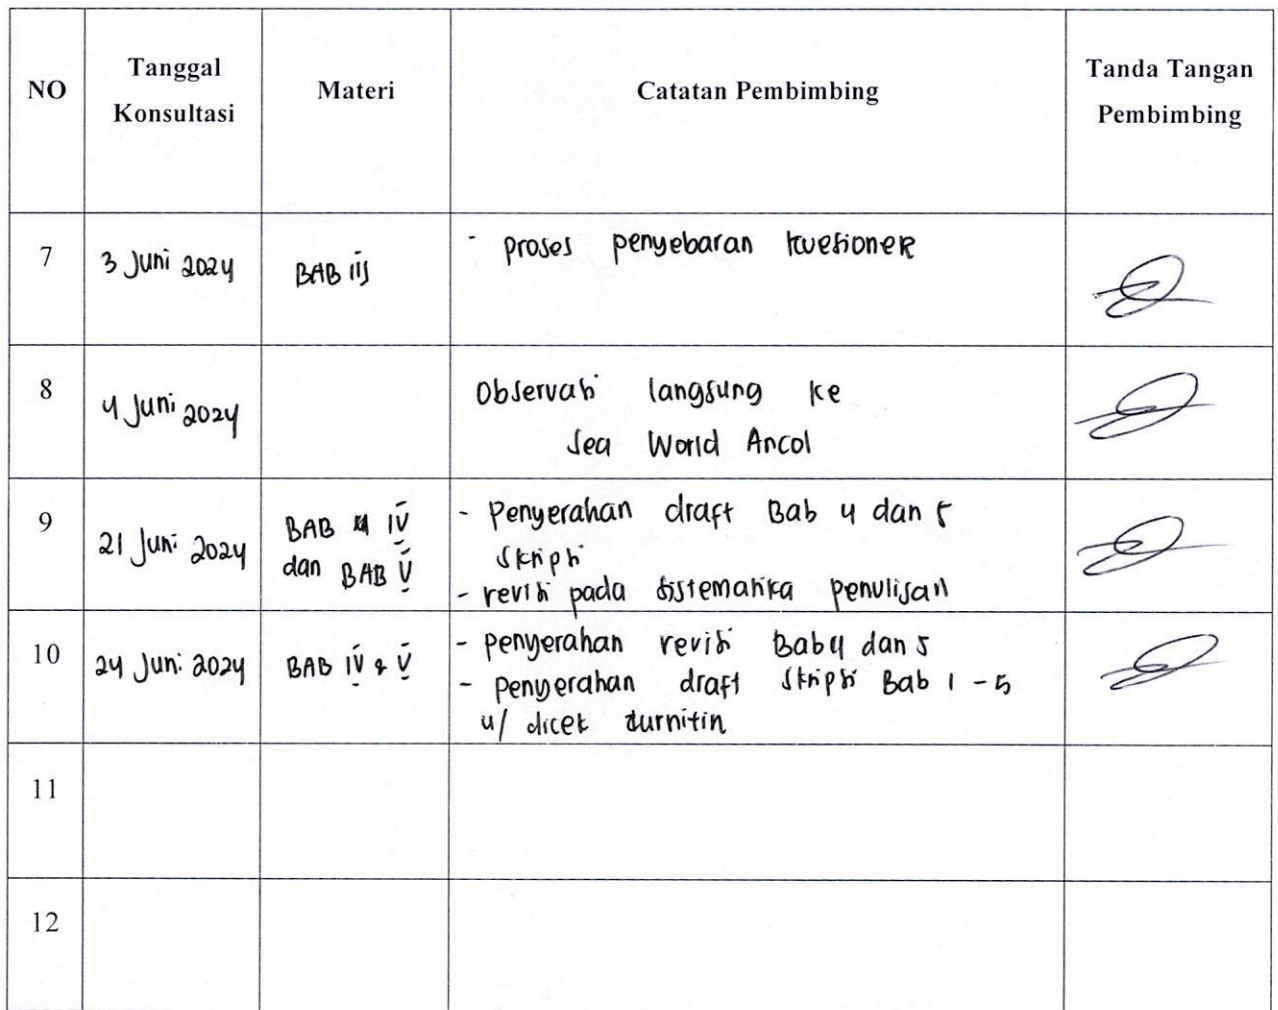 NO
Tanggal
Konsultasi
Materi
Catatan Pembimbing
Tanda Tangan
Pembimbing
7
3 Juni 2024
BAB iij
- proses penyebaran kuesioner
8
4 Juni 2024
Observasi langsung ke
Sea World Ancol
9
21 Juni 2024
BAB IV
dan BAB V
- Penyerahan draft Bab 4 dan 5
skripsi
- revisi pada sistematika penulisan
10
24 Juni 2024
BAB IV & V
- penyerahan revisi Bab 4 dan 5
- penyerahan draft skripsi Bab 1 - 5
u/ dicek turnitin
11
12